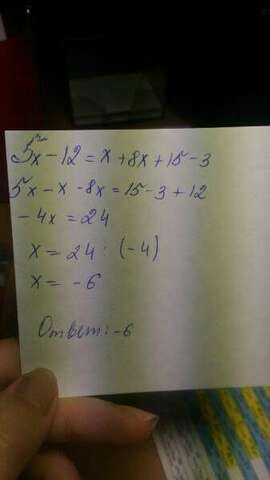 5x-12=x+8x+15-3
5x-x-8x=15-3+12
-4x=24
x=24:(-4)
x=-6
Ответ:-6